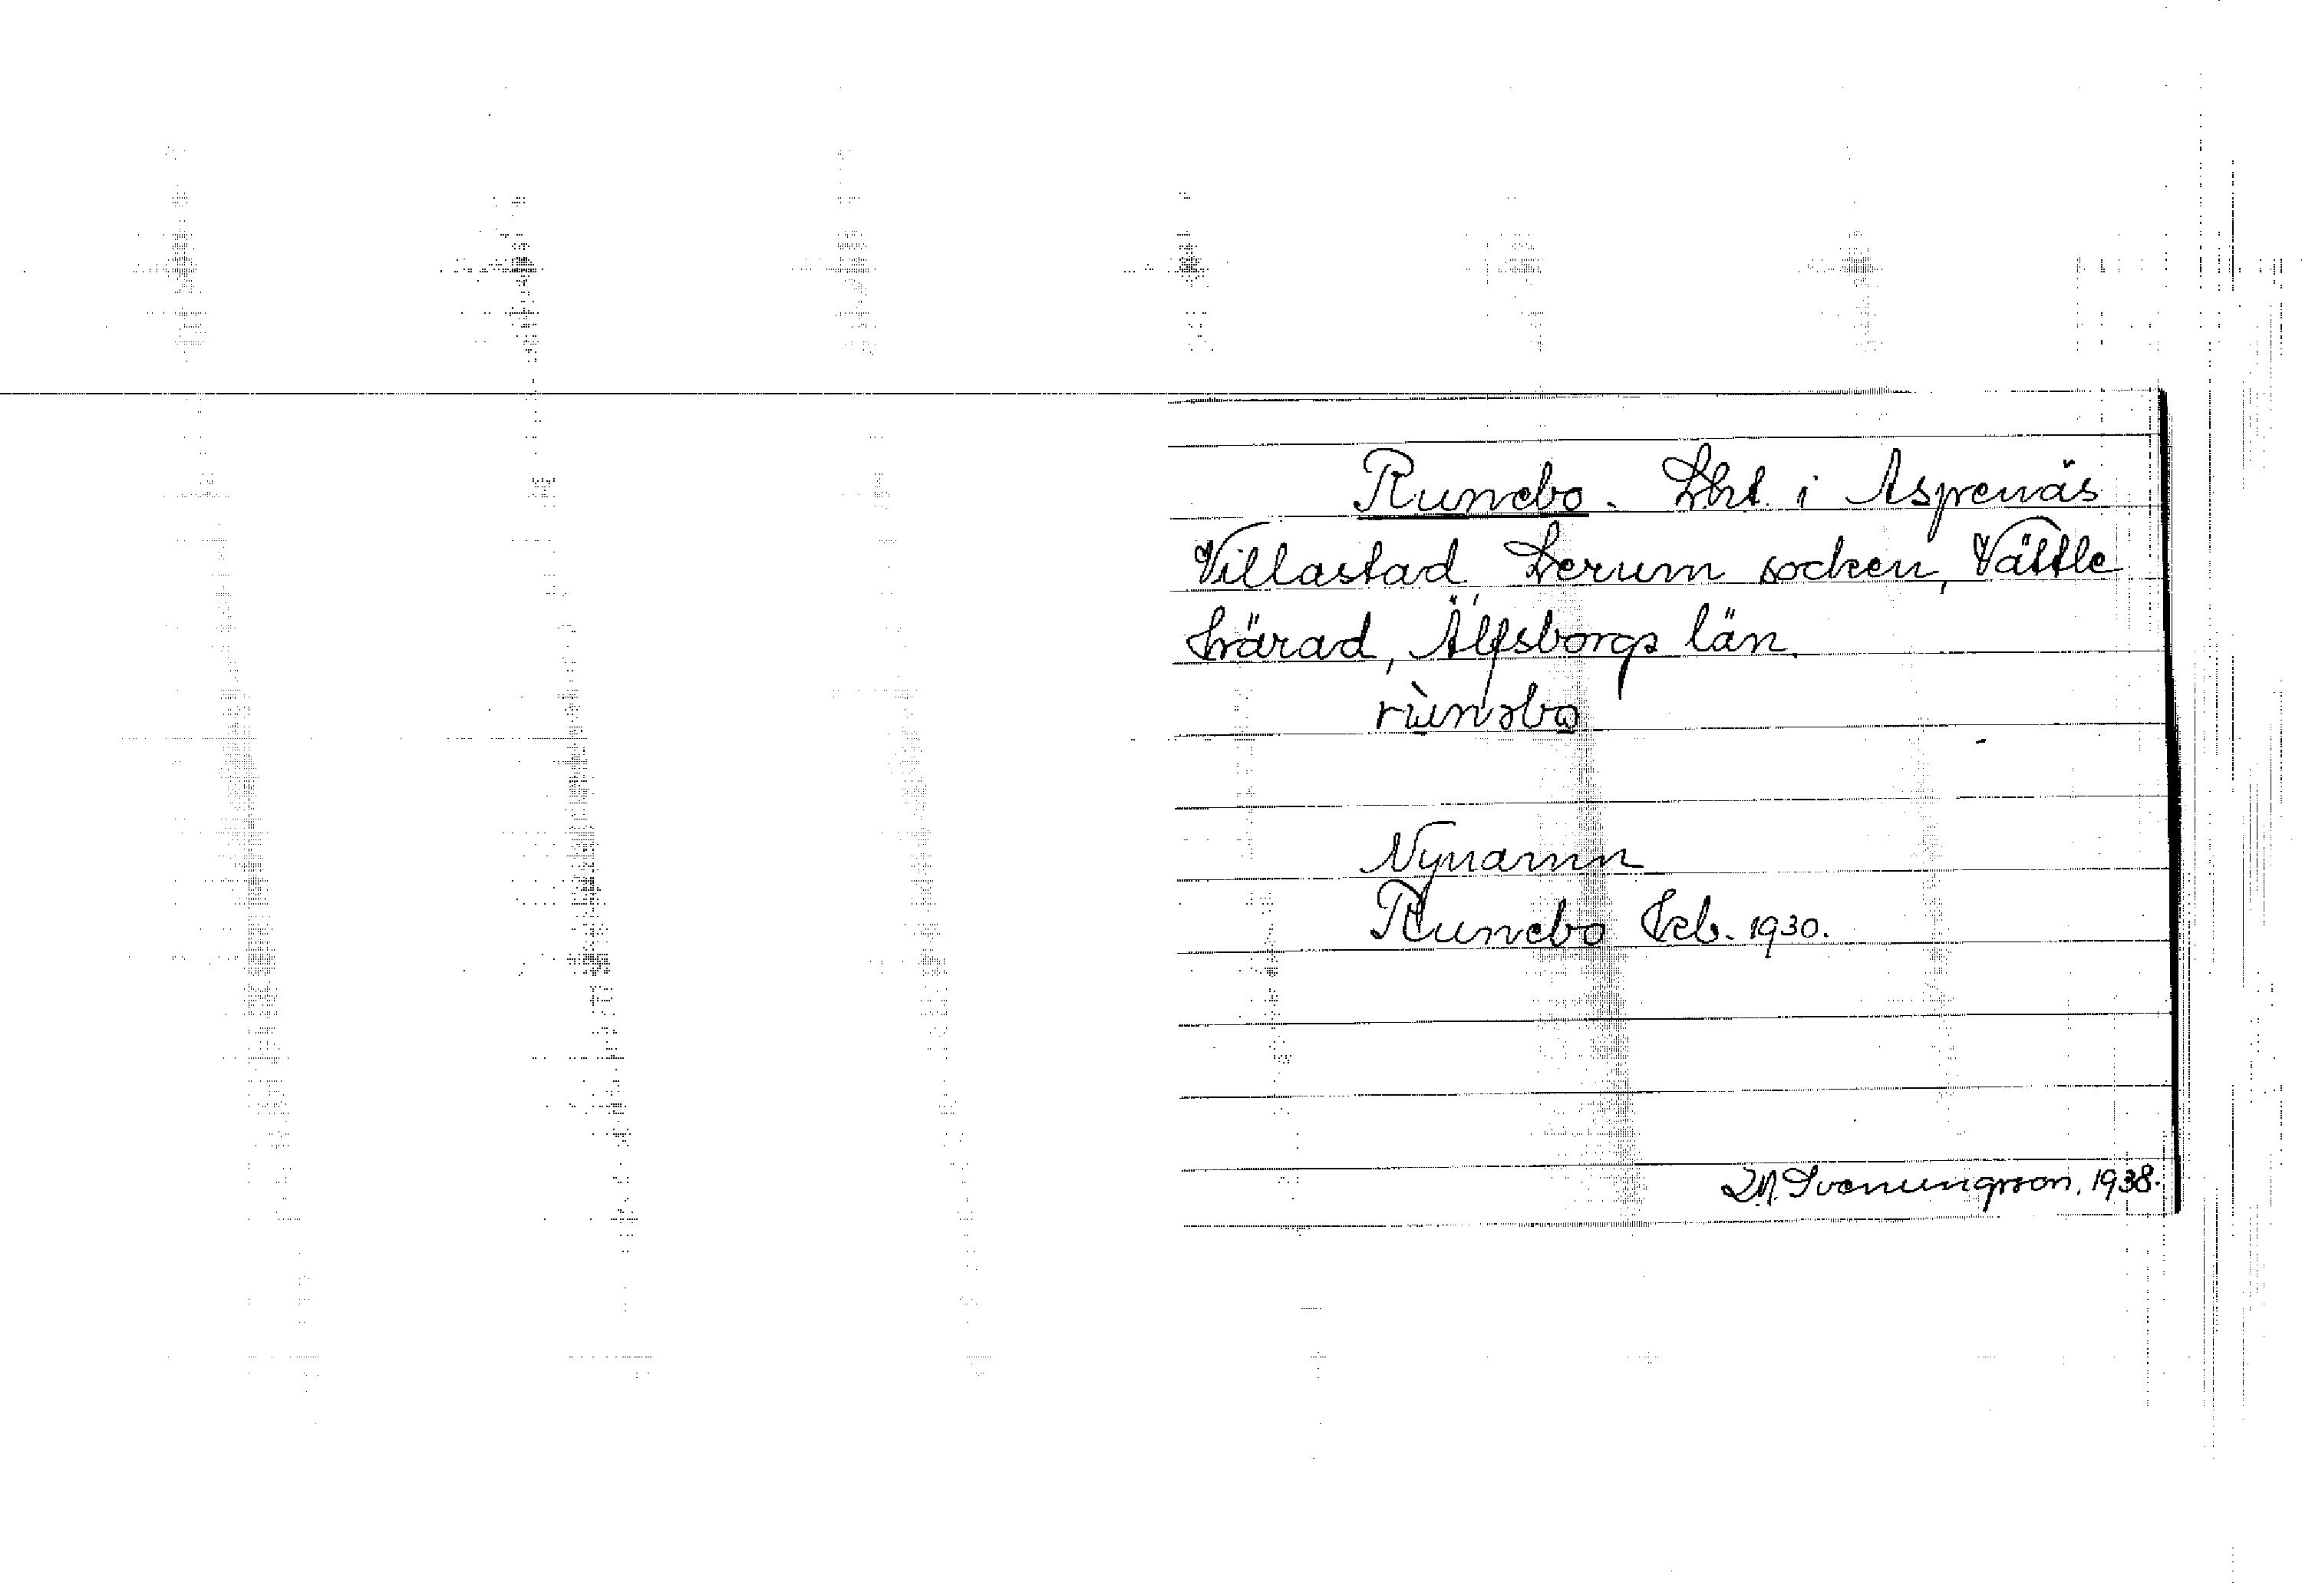 Runebo. Lht. i Aspenäs
Villastad Lerum socken, Vättle
härad, Älfsborgs län.
rùnəbo
Nynamn
Runebo Feb. 1930.
M. Svenungsson, 1938.